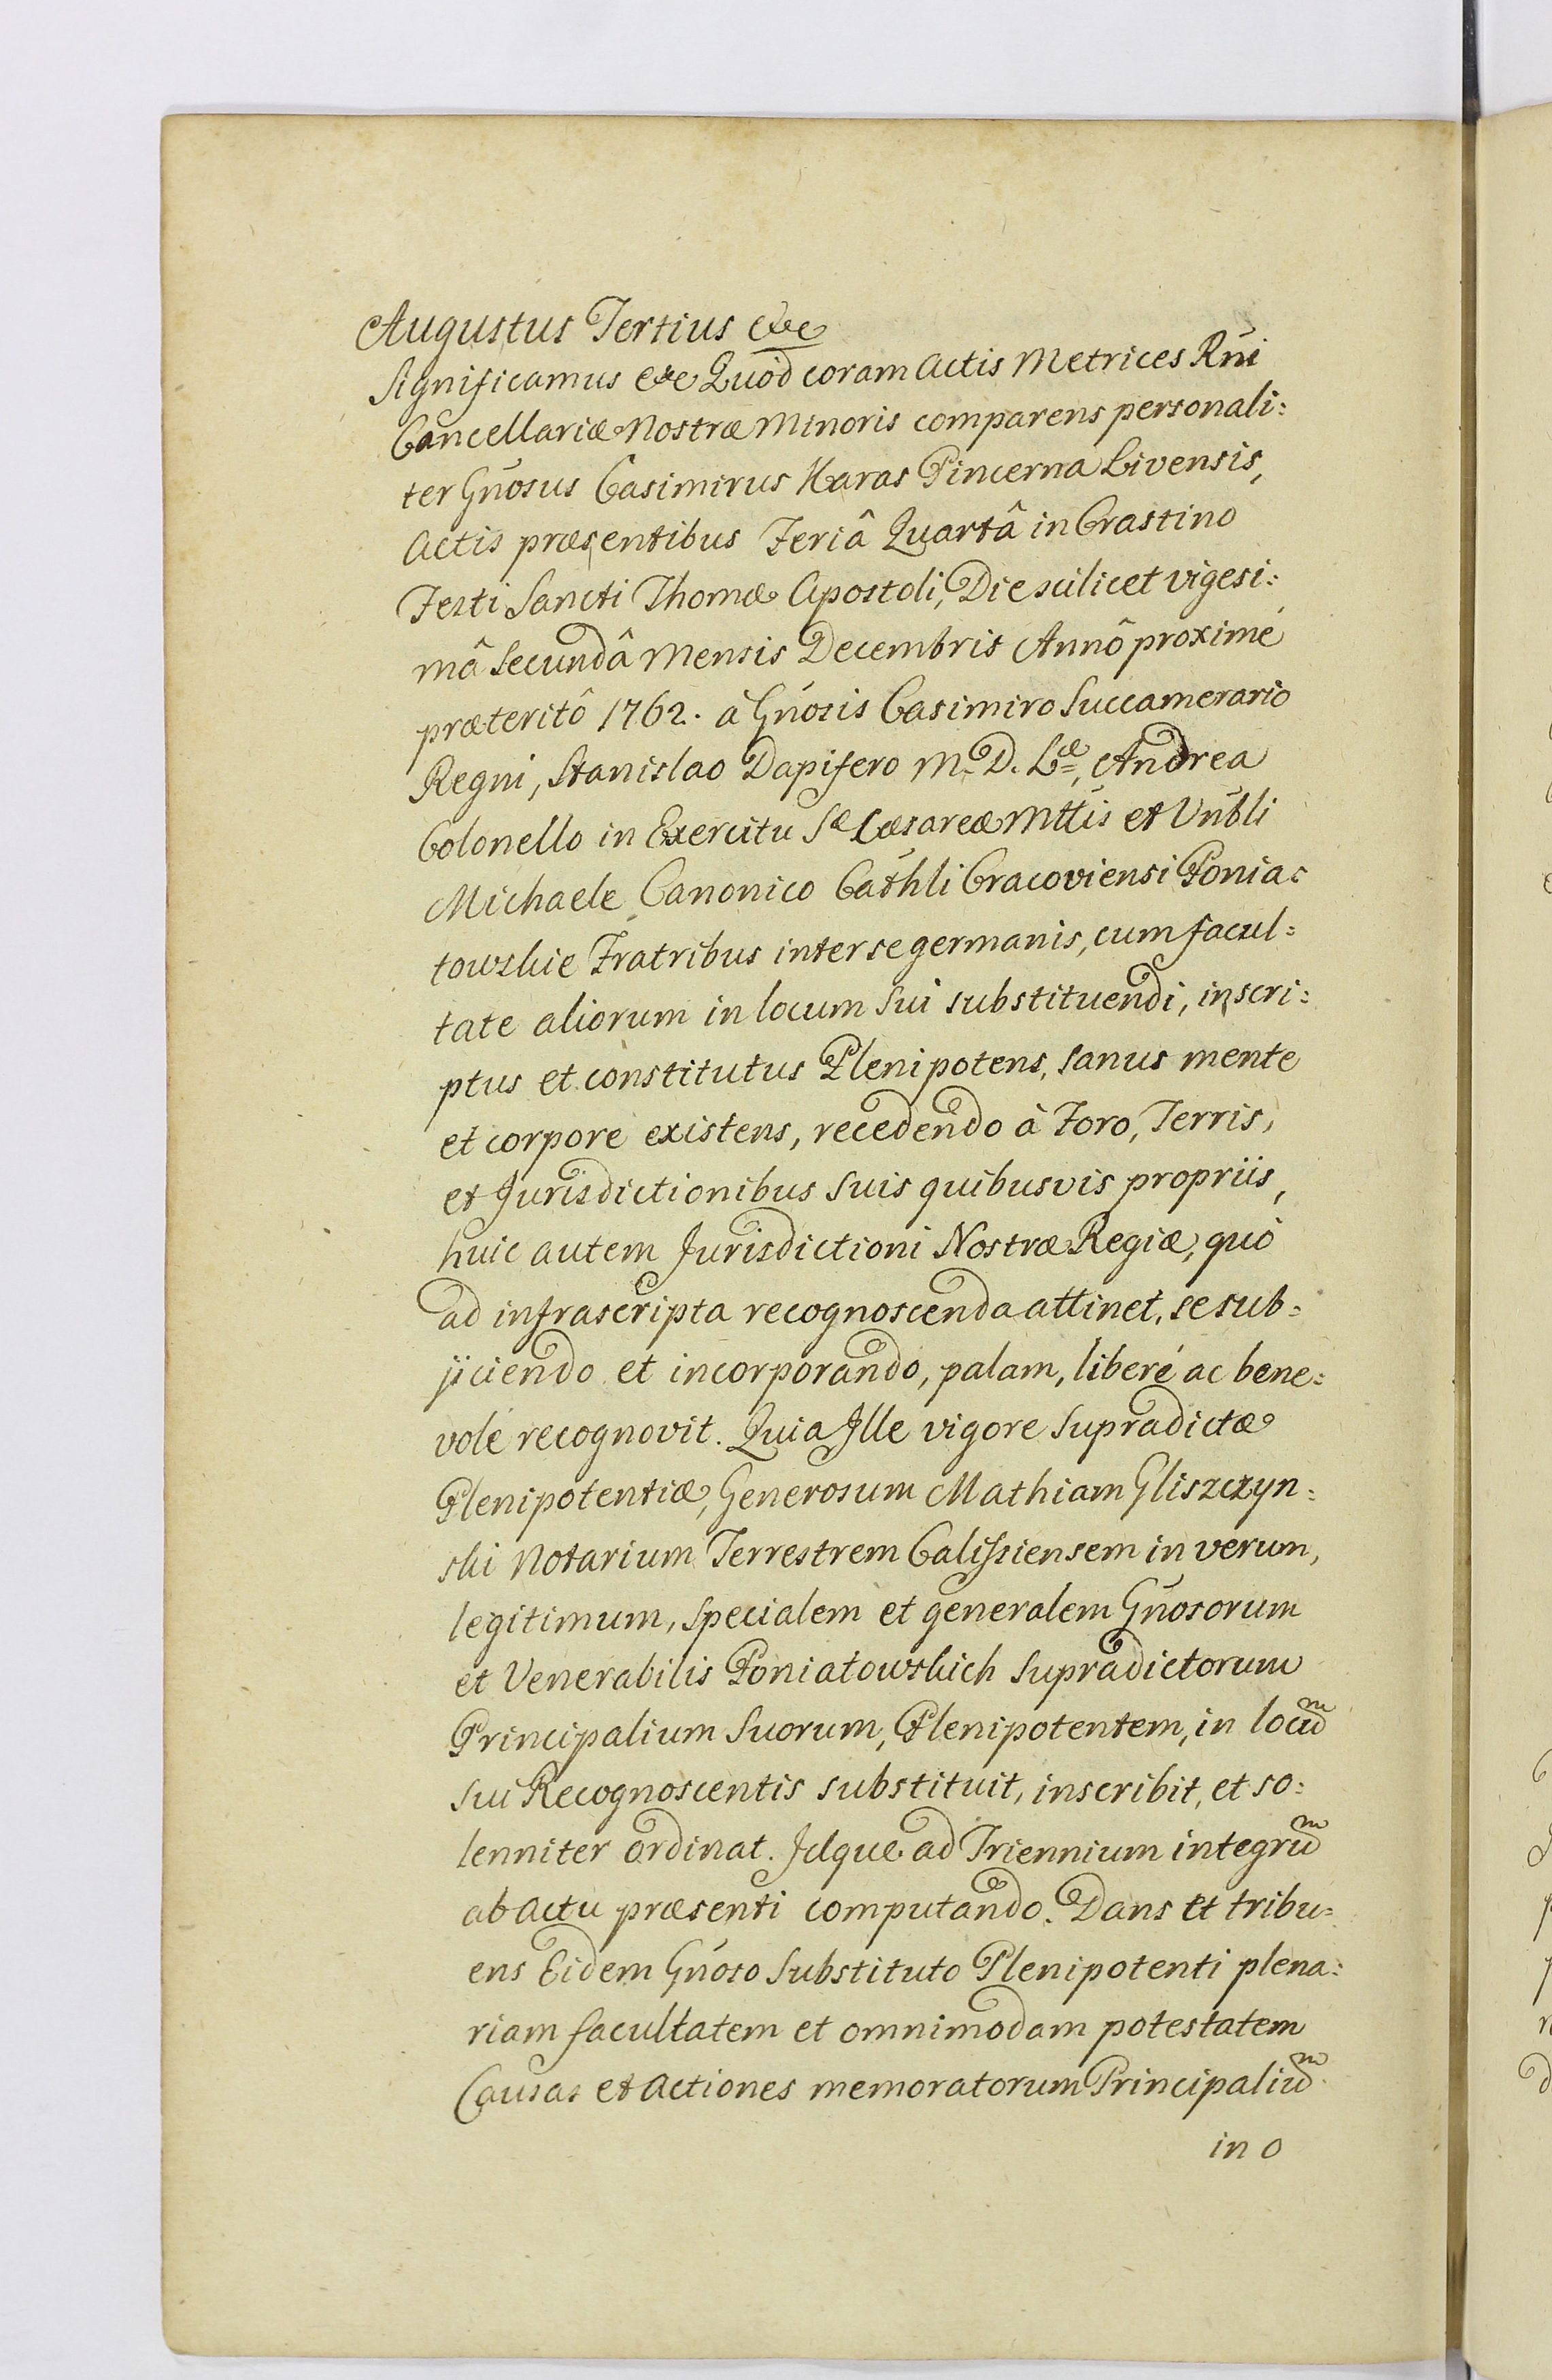 Augustus Tertius &c
Significamus &c Quod coram Actis Metrices Rńi
Cancellariæ Nostræ Minoris comparens personali:
ter Gńosus Casimirus Karas Pincerna Livensis,
Actis præsentibus Feriâ Quartâ in Crastino
Festi Sancti Thomæ Apostoli, Die scilicet vigesi:
mâ Secundâ Mensis Decembris Annô proxime
præteritô 1762. à Gńosis Casimiro Succamerario
Regni, Stanislao Dapifero M. D. Læ, Andrea
Colonello in Exercitu Sæ Cæsareæ Mttis et Vńbli
Michaele Canonico Cathli Cracoviensi Ponia:
towskie Fratribus inter se germanis, cum facul:
tate aliorum in locum Sui substituendi, inscri:
ptus et constitutus Plenipotens, sanus mente
et corpore existens, recedendo à Foro, Terris,
et Jurisdictionibus Suis quibusvis propriis,
huic autem Jurisdictioni Nostræ Regiæ, quò
ad infrascripta recognoscenda attinet, se sub:
jiciendo et incorporando, palam, liberé ac bene:
volé recognovit. Quia Ille vigore Supradictæ
Plenipotentiæ, Generosum Mathiam Gliszczyn:
ski Notarium Terrestrem Calissiensem in verum,
legitimum, specialem et generalem Gńosorum
et Venerabilis Poniatowskich Supradictorum
Principalium Suorum, Plenipotentem, in locum
Sui Recognoscentis substituit, inscribit, et so:
lenniter ordinat. Idque ad Triennium integrum
ab Actu præsenti computando. Dans et tribu:
ens Eidem Gńoso Substituto Plenipotenti plena:
riam facultatem et omnimodam potestatem
Causas et Actiones memoratorum Principalium
in o